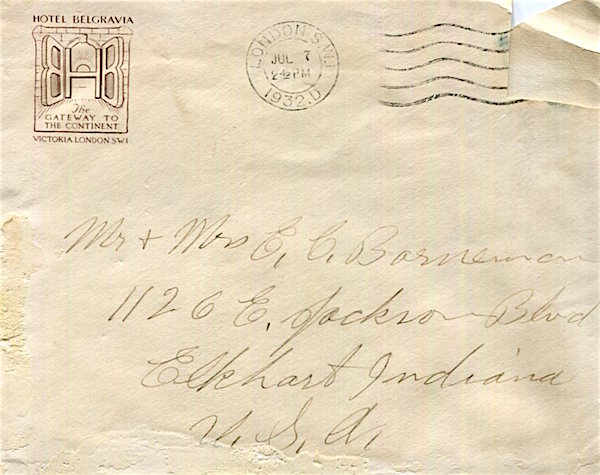 HOTEL BELGRAVIA
The
GATEWAY TO
THE CONTINENT
VICTORIA LONDON SW1
LONDON. S.W.1
JUL 7
PM
1932.D
Mr + Mrs E. C. Borneman
1126 E. Jackson Blvd
Elkhart Indiana
U. S. A.